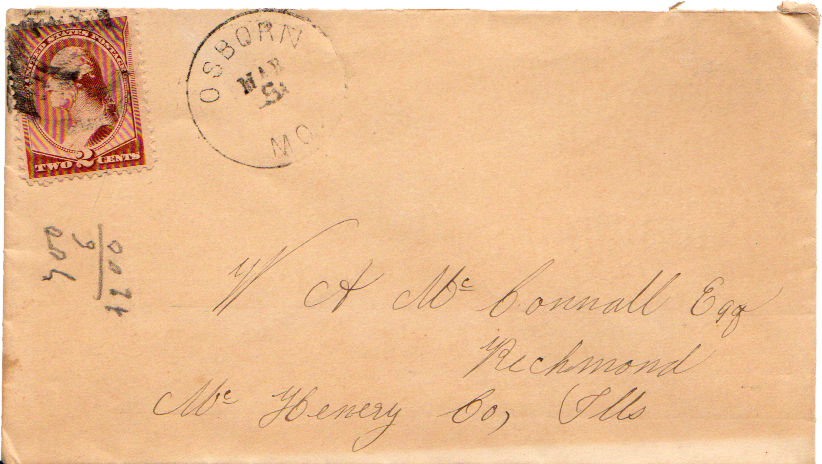 UNITED STATES POSTAGE
TWO 2 CENTS
OSBORN
MAR
5
MO.
700
6
4200
W A Mc Connall Esq
Richmond
Mc Henery Co, Ills